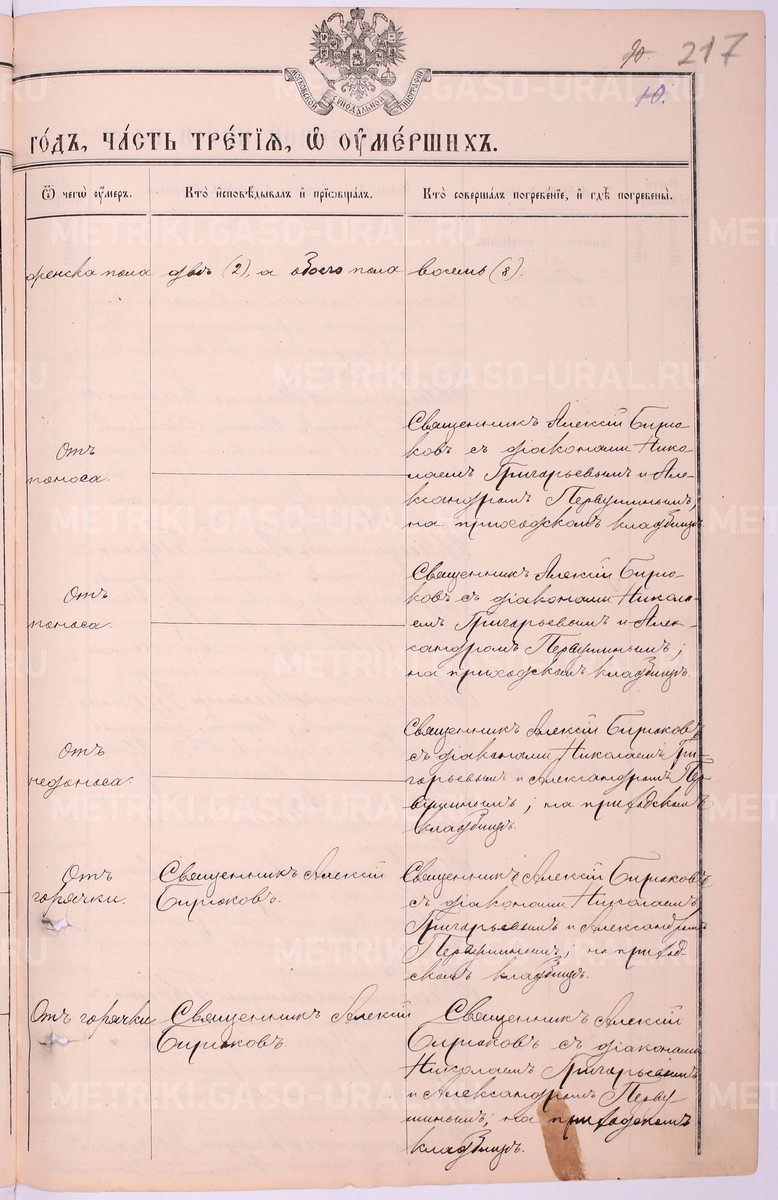 МОСКОВСКОЙ СѴНОДАЛЬНОЙ ТИПОГРАФІИ
217
10.
ГО́ДЪ, ЧА́СТЬ ТРЕ́ТІѦ, Ѡ҆ ОУ҆МЕ́РШИХЪ.
Ѿ чегѡ̀ оу҆́меръ.
Кто̀ и҆сповѣ́дывалъ и҆ прїѡбща́лъ.
Кто̀ соверша́лъ погребе́нїе, и҆ гдѣ̀ погребены̀.
женска пола двѣ (2), а обоего пола восемь (8).
Отъ
поноса.
Священникъ Алексій Бирю-
ковъ съ діаконами Нико-
лаемъ Григорьевымъ и Але-
ксандромъ Первушинымъ;
на приходскомъ кладбищѣ.
Отъ
поноса.
Священникъ Алексій Бирю-
ковъ съ діаконами Никола-
емъ Григорьевымъ и Алек-
сандромъ Первушинымъ;
на приходскомъ кладбищѣ.
Отъ
недоноса.
Священникъ Алексій Бирюковъ
съ діаконами Николаемъ Гри-
горьевымъ и Александромъ Пер-
вушинымъ; на приходскомъ
кладбищѣ.
Отъ
горячки.
Священникъ Алексій
Бирюковъ.
Священникъ Алексій Бирюковъ
съ діаконами Николаемъ
Григорьевымъ и Александромъ
Первушинымъ; на приход-
скомъ кладбищѣ.
Отъ горячки
Священникъ Алексій
Бирюковъ
Священникъ Алексій
Бирюковъ съ діаконами
Николаемъ Григорьевымъ
и Александромъ Перву
шинымъ; на приходскомъ
кладбищѣ.
METRIKI.GASO-URAL.RU